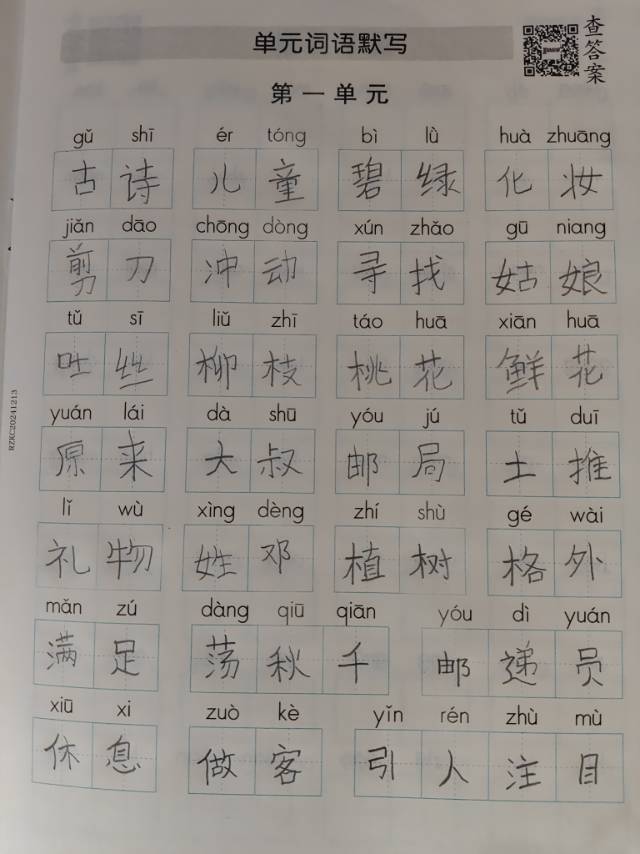 单元词语默写
查答案
第一单元
gǔ shī ér tóng bì lǜ huà zhuāng
古诗 儿童 碧绿 化妆
jiǎn dāo chōng dòng xún zhǎo gū niang
剪刀 冲动 寻找 姑娘
tǔ sī liǔ zhī táo huā xiān huā
吐丝 柳枝 桃花 鲜花
yuán lái dà shū yóu jú tǔ duī
原来 大叔 邮局 土推
lǐ wù xìng dèng zhí shù gé wài
礼物 姓邓 植树 格外
mǎn zú dàng qiū qiān yóu dì yuán
满足 荡秋千 邮递员
xiū xi zuò kè yǐn rén zhù mù
休息 做客 引人注目
RZXC20241213